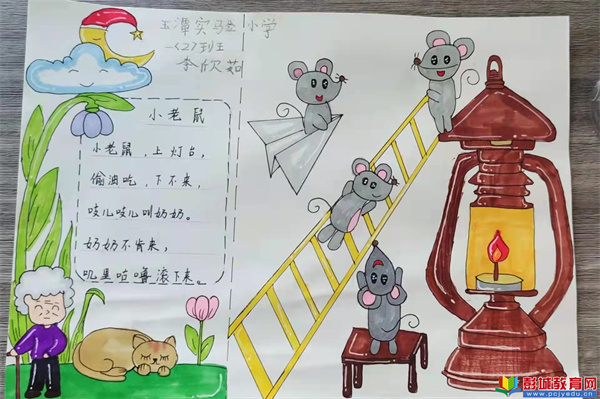 玉潭实验小学
一〈2〉班
李欣茹
小老鼠
小老鼠,上灯台,
偷油吃,下不来,
吱儿吱儿叫奶奶。
奶奶不肯来,
叽里咕噜滚下来。
彭城教育网
www.pcjyedu.cn